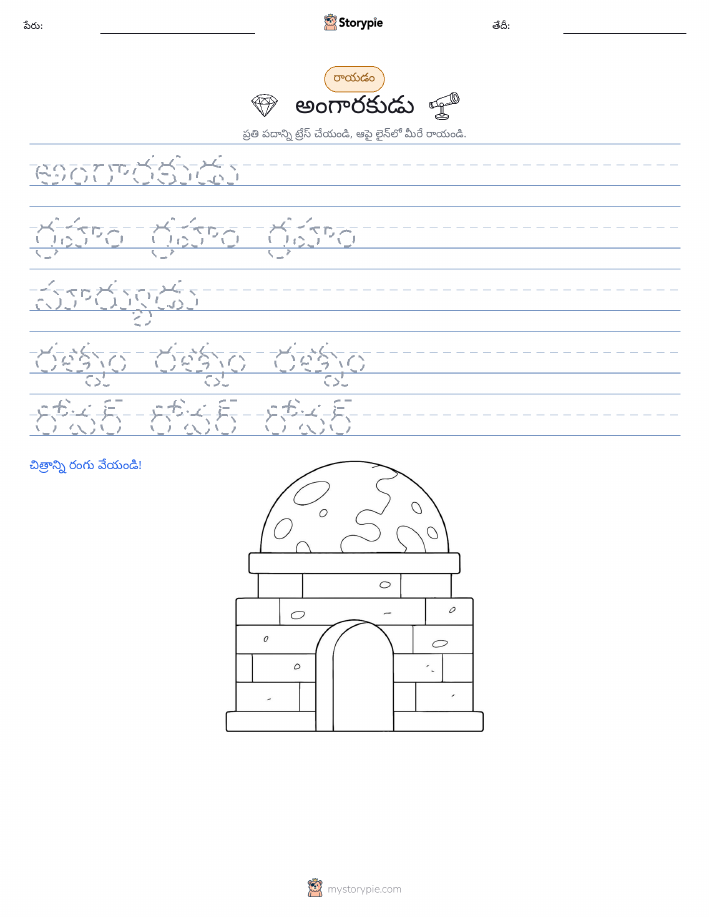 పేరు:
Storypie
తేదీ:
రాయడం
అంగారకుడు
ప్రతి పదాన్ని ట్రేస్ చేయండి, ఆపై లైన్‌లో మీరే రాయండి.
అంగారకుడు
గ్రహం గ్రహం గ్రహం
సూర్యుడు
రత్నం రత్నం రత్నం
రోవర్ రోవర్ రోవర్
చిత్రాన్ని రంగు వేయండి!
mystorypie.com